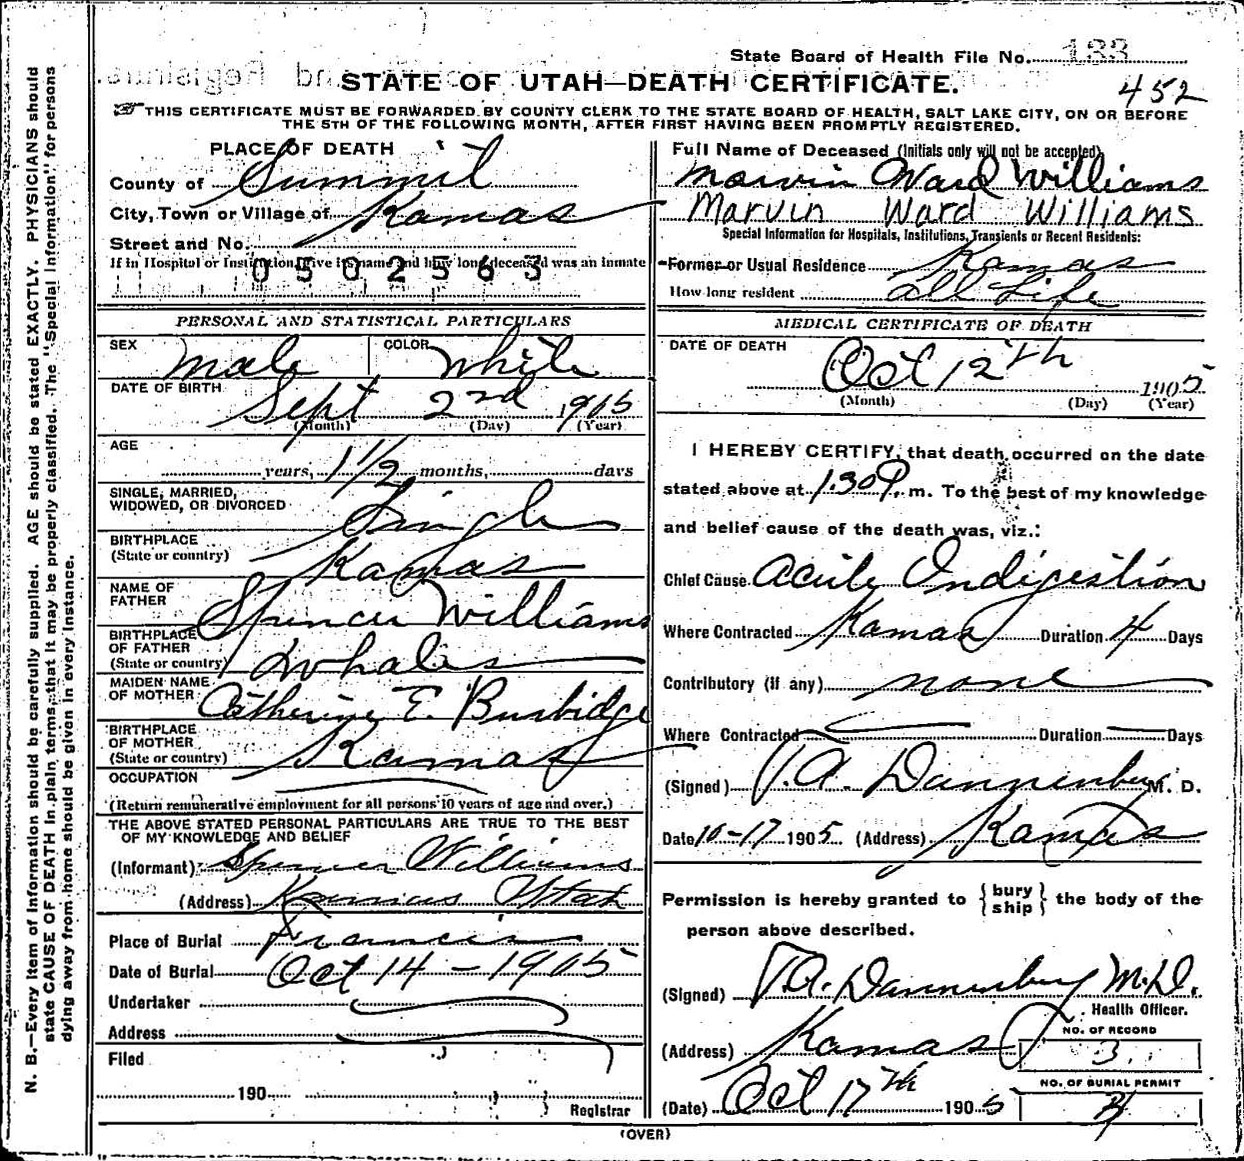 State Board of Health File No. 133
STATE OF UTAH—DEATH CERTIFICATE.
452
THIS CERTIFICATE MUST BE FORWARDED BY COUNTY CLERK TO THE STATE BOARD OF HEALTH, SALT LAKE CITY, ON OR BEFORE
THE 5TH OF THE FOLLOWING MONTH, AFTER FIRST HAVING BEEN PROMPTLY REGISTERED.
N. B.—Every item of information should be carefully supplied. AGE should be stated EXACTLY. PHYSICIANS should
state CAUSE OF DEATH in plain terms, that it may be properly classified. The "Special Information" for persons
dying away from home should be given in every instance.
PLACE OF DEATH
County of Summit
City, Town or Village of Kamas
Street and No.
If in Hospital or Institution, give its name and how long deceased was an inmate
0502563
PERSONAL AND STATISTICAL PARTICULARS
SEX male COLOR white
DATE OF BIRTH
Sept 2nd 1905
(Month) (Day) (Year)
AGE
years, 1 1/2 months, days
SINGLE, MARRIED,
WIDOWED, OR DIVORCED Single
BIRTHPLACE
(State or country) Kamas
NAME OF
FATHER Spencer Williams
BIRTHPLACE
OF FATHER
(State or country) Whales
MAIDEN NAME
OF MOTHER Catherine E. Burbidge
BIRTHPLACE
OF MOTHER
(State or country) Kamas
OCCUPATION
(Return remunerative employment for all persons 10 years of age and over.)
THE ABOVE STATED PERSONAL PARTICULARS ARE TRUE TO THE BEST
OF MY KNOWLEDGE AND BELIEF
(Informant) Spencer Williams
(Address) Kamas Utah
Place of Burial Francis
Date of Burial Oct 14 - 1905
Undertaker
Address
Filed
190
Registrar
Full Name of Deceased (Initials only will not be accepted)
Marvin Ward Williams
Marvin Ward Williams
Special Information for Hospitals, Institutions, Transients or Recent Residents:
Former or Usual Residence Kamas
How long resident all Life
MEDICAL CERTIFICATE OF DEATH
DATE OF DEATH
Oct 12th 1905
(Month) (Day) (Year)
I HEREBY CERTIFY, that death occurred on the date
stated above at 1.30 P. m. To the best of my knowledge
and belief cause of the death was, viz.:
Chief Cause Acute Indigestion
Where Contracted Kamas Duration 4 Days
Contributory (if any) none
Where Contracted Duration Days
(Signed) J.A. Dannenburg M. D.
Date 10-17 1905 (Address) Kamas
Permission is hereby granted to { bury ship } the body of the
person above described.
(Signed) J.A. Dannenburg M.D.
Health Officer.
(Address) Kamas
NO. OF RECORD
3
NO. OF BURIAL PERMIT
(Date) Oct 17th 1905
(OVER)